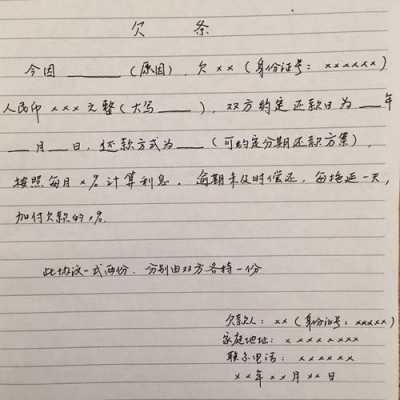 欠 条
今因______(原因),欠××(身份证号:××××××)
人民币×××元整(大写____),双方约定还款日为___年
___月___日,还款方式为____(可约定分期还款方案),
按照每月×%计算利息。逾期未及时偿还,每拖延一天,
加付欠款的×%.
此协议一式两份.分别由双方各持一份
欠款人:××(身份证号:×××××)
家庭地址:××××××××
联系电话:××××××
××年××月××日